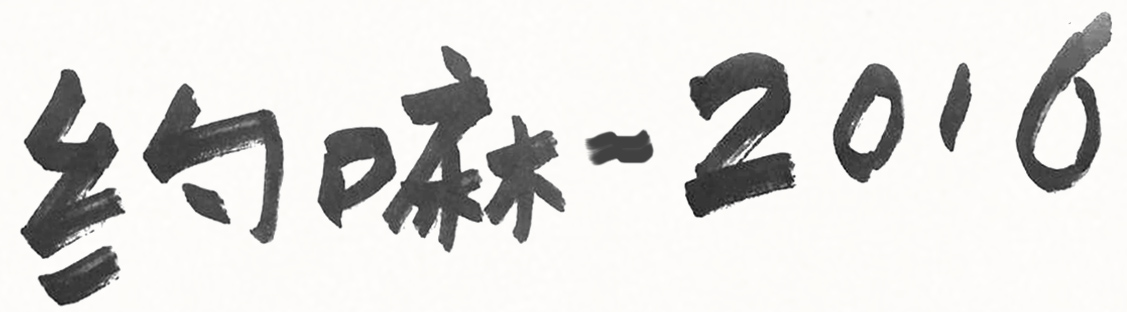 约嘛-2016